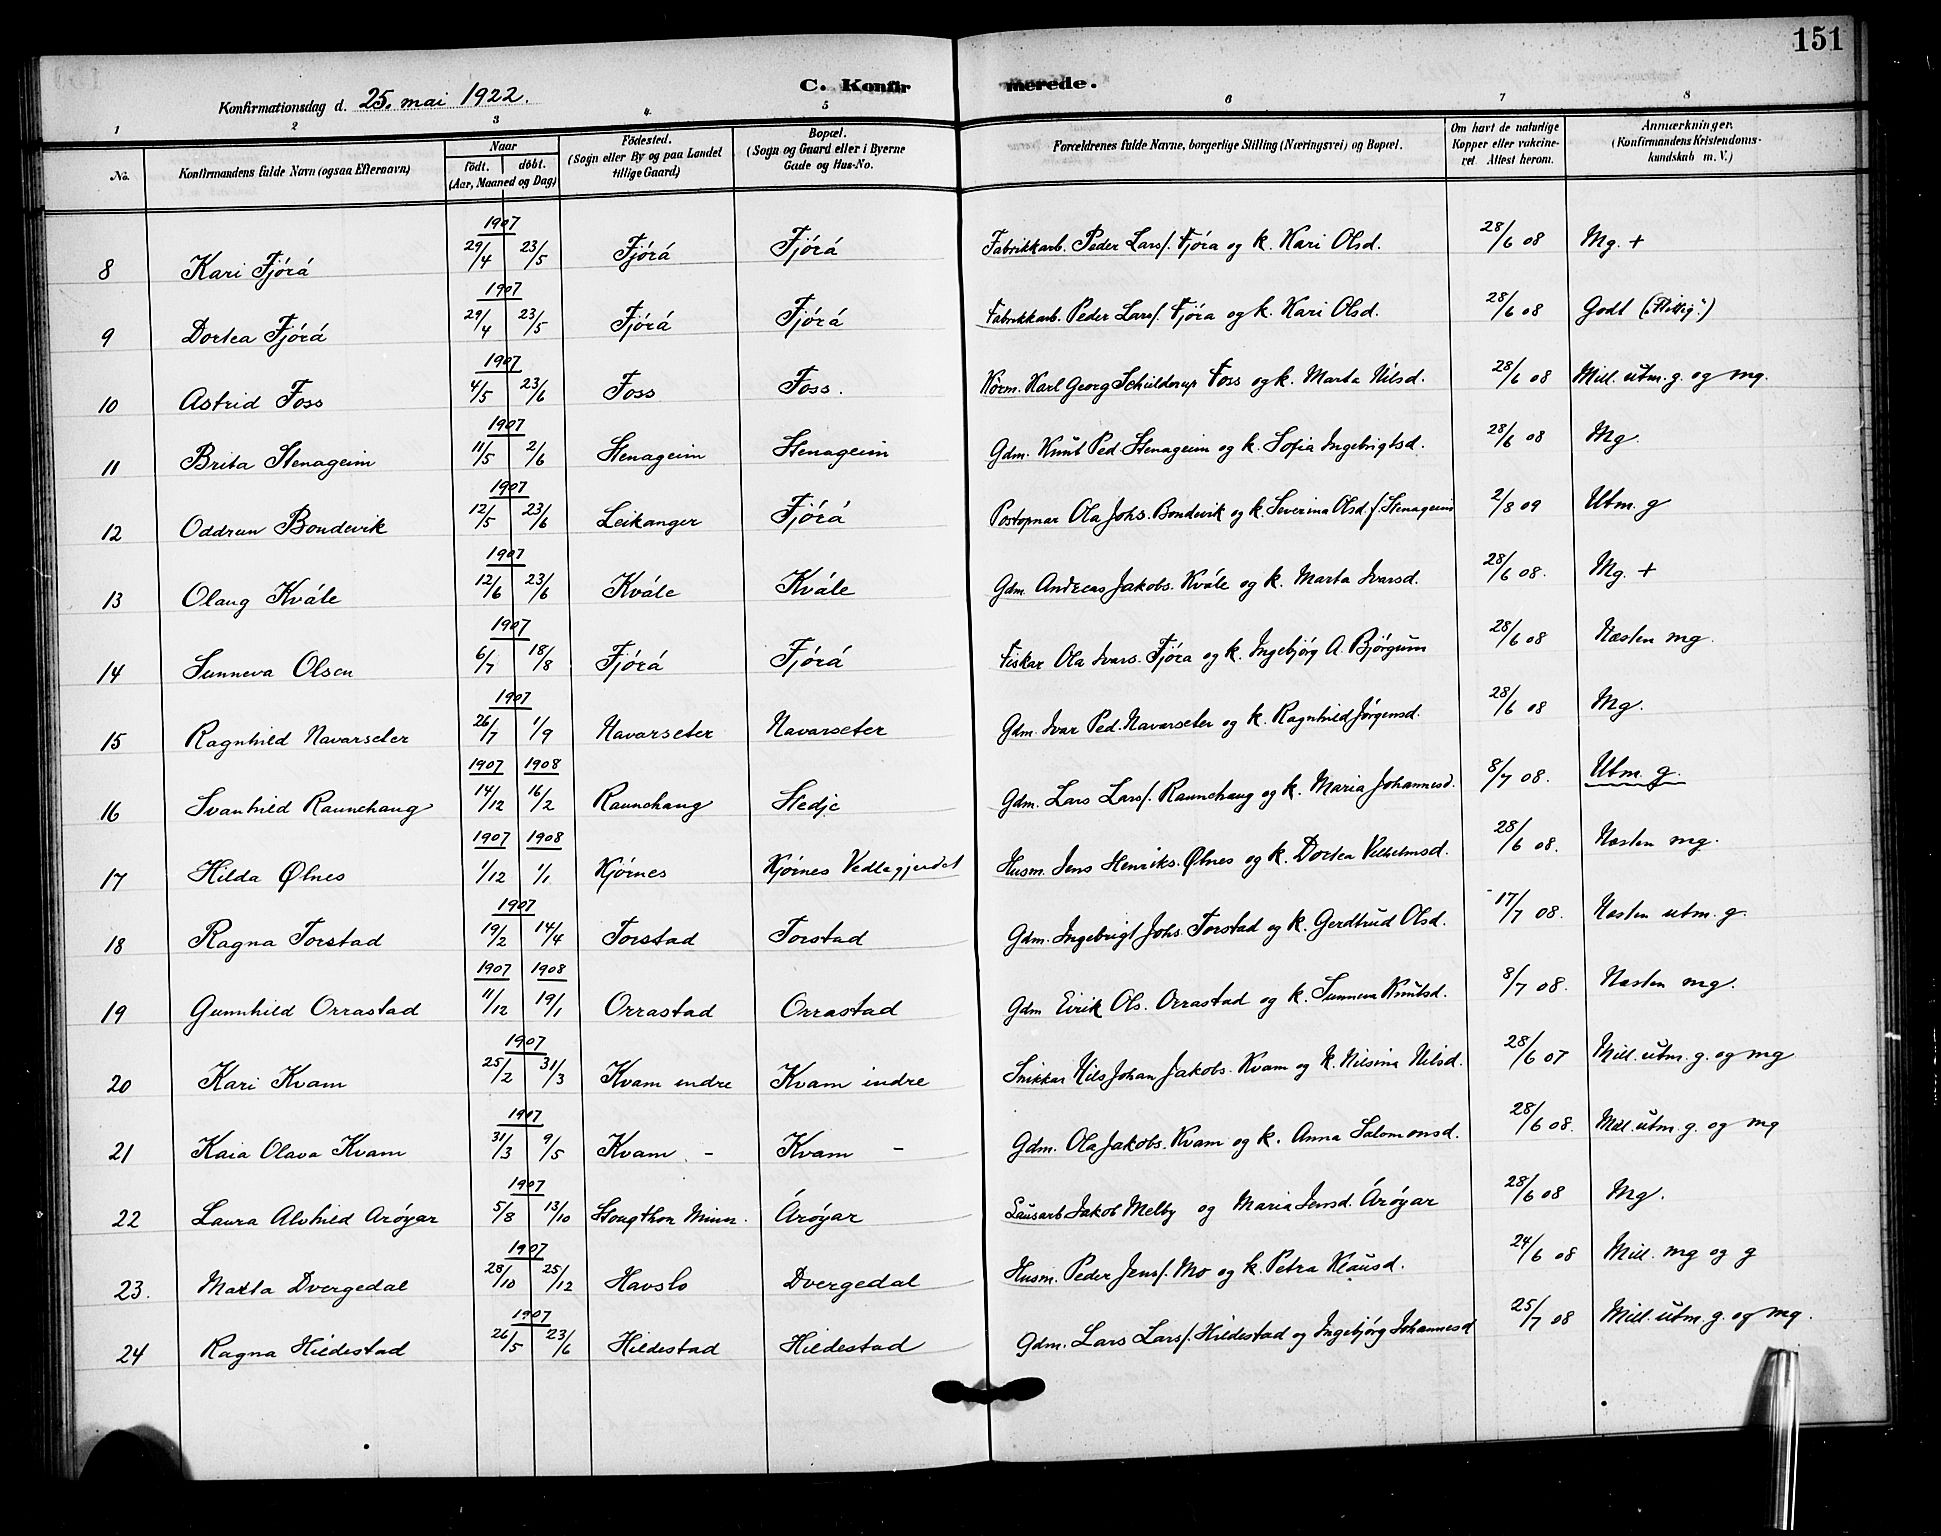 151
C. Konfirmerede.
Konfirmationsdag d. 25. mai 1922.
1 2 3 4 5 6 7 8
No. Konfirmandens fulde Navn (ogsaa Efternavn) Naar født. døbt. (Aar, Maaned og Dag) Fødested. (Sogn eller By og paa Landet tillige Gaard) Bopæl. (Sogn og Gaard eller i Byerne Gade og Hus-No. Forældrenes fulde Navne, borgerlige Stilling (Næringsvei) og Bopæl. Om havt de naturlige Kopper eller vakcineret Attest herom. Anmærkninger. (Konfirmandens Kristendomskundskab m. V.)
1907
8 Kari Fjórá 29/4 23/5 Fjórá Fjórá Fabrikkarb. Peder Larss. Fjóra og k. Kari Olsd. 28/6 08 Mg. +
1907
9 Dortea Fjórá 29/4 23/5 Fjórá Fjórá Fabrikkarb. Peder Larss. Fjóra og k. Kari Olsd. 28/6 08 Godt („Flittig")
1907
10 Astrid Foss 4/5 23/6 Foss Foss. Karl Georg Schilderup Foss og k. Marta Nilsd. 28/6 08 Mill. utm. g. og mg.
1907
11 Brita Stenageim 11/5 2/6 Stenageim Stenageim Gdm. Knut Ped. Stenageim og k. Sofia Ingebrigtsd. 28/6 08 Mg.
1907
12 Oddrun Bondevik 12/5 23/6 Leikanger Fjórá Postopnar Ola Johs. Bondevik og k. Severina Olsd. f. Stenageim 2/8 09 Utm. g
1907
13 Olaug Kvále 12/6 23/6 Kvále Kvále Gdm. Andreas Jakobs. Kvále og k. Marta Ivarsd. 28/6 08. Mg. +
1907
14 Sunneva Olsen 6/7 18/8 Fjórá Fjórá Fiskar Ola Ivars. Fjóra og k. Ingebjórg A. Bjórgum 28/6 08 Næsten mg.
1907
15 Ragnhild Navarseter 26/7 1/9 Navarseter Navarseter Gdm. Ivar Ped. Navarseter og k. Ragnhild Jórgensd. 28/6 08 Mg.
1907 1908
16 Svanhild Raunehaug 14/12 16/2 Raunehaug Stedje Gdm. Lars Larss. Raunehaug og k. Maria Johannesd. 8/7 08. Utm. g.
1907 1908
17 Hilda Ølnes 1/12 1/1 Kjórnes Kjórnes Vedlegjerdet Husm. Jens Henriks. Ølnes og k. Dortea Vilhelmsd. 28/6 08. Næsten mg.
1907
18 Ragna Torstad 19/2 14/4 Torstad Torstad Gdm. Ingebrigt Johs. Torstad og k. Gerdtrud Olsd. 17/7 08. Næsten utm. g.
1907 1908
19 Gunnhild Orrastad 11/12 19/1 Orrastad Orrastad Gdm Eirik Ols. Orrastad og k. Sunneva Knutsd. 8/7 08. Næsten mg.
1907
20 Kari Kvam 25/2 31/3 Kvam indre Kvam indre Snikkar Nils Johan Jakobs. Kvam og k. Nilsina Nilsd. 28/6 07 Mill. utm. g. og mg
1907
21 Kaia Olava Kvam 31/3 9/5 Kvam - Kvam - Gdm. Ola Jakobs. Kvam og k. Anna Salomonsd. 28/6 08. Mill utm. g. og mg
1907
22 Laura Alvhild Aróyar 5/8 13/10 Stougthon Minn. Áróyar Lausarb Jakob Melby og Maria Jensd. Áróyar 28/6 08 Mg.
1907
23. Marta Dvergedal 28/10 25/12 Havslo Dvergedal Husm. Peder Jenss. Mo og k. Petra Klausd. 24/6 08 Mill. mg og g
1907
24 Ragna Hildestad 26/5 23/6 Hildestad Hildestad Gdm. Lars Larss. Hildestad og Ingebjórg Johannesd 25/7 08 Mill. utm. g. og mg.